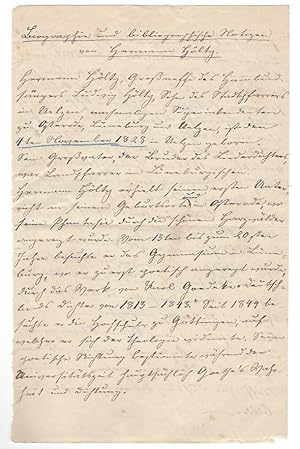 Biographie und bibliographische Notizen
von Hermann Hölty.
Hermann Hölty, Großneffe des Hainbund-
sängers Ludwig Hölty, Sohn des Stadtpfarrers
in Uelzen, nachmaligen Superintendenten
zu Osterode, Lüneburg und Uelzen, ist den
4ten November 1828 in Uelzen geboren.
Sein Großvater, der Bruder des Liederdichters
war Landpfarrer im Lüneburgischen.
Hermann Hölty erhielt seinen ersten Unter-
richt an seinem Osterode, wo
seine Phantasie durch die schönen Harzwälder
angeregt wurde. Vom 13ten bis zum 20sten
Jahre besuchte er das Gymnasium in Lüne-
burg, wo er zuerst poetisch angeregt wurde,
durch das Werk von Karl Goedeke: Deutsch-
lands Dichter von 1813–1843. Seit 1849 be-
suchte er die Hochschule zu Göttingen, auf
welcher er sich der Theologie widmete. Seine
poetische Richtung bestimmte während der
Universitätszeit hauptsächlich Goethe's Wahr-
heit und Dichtung.